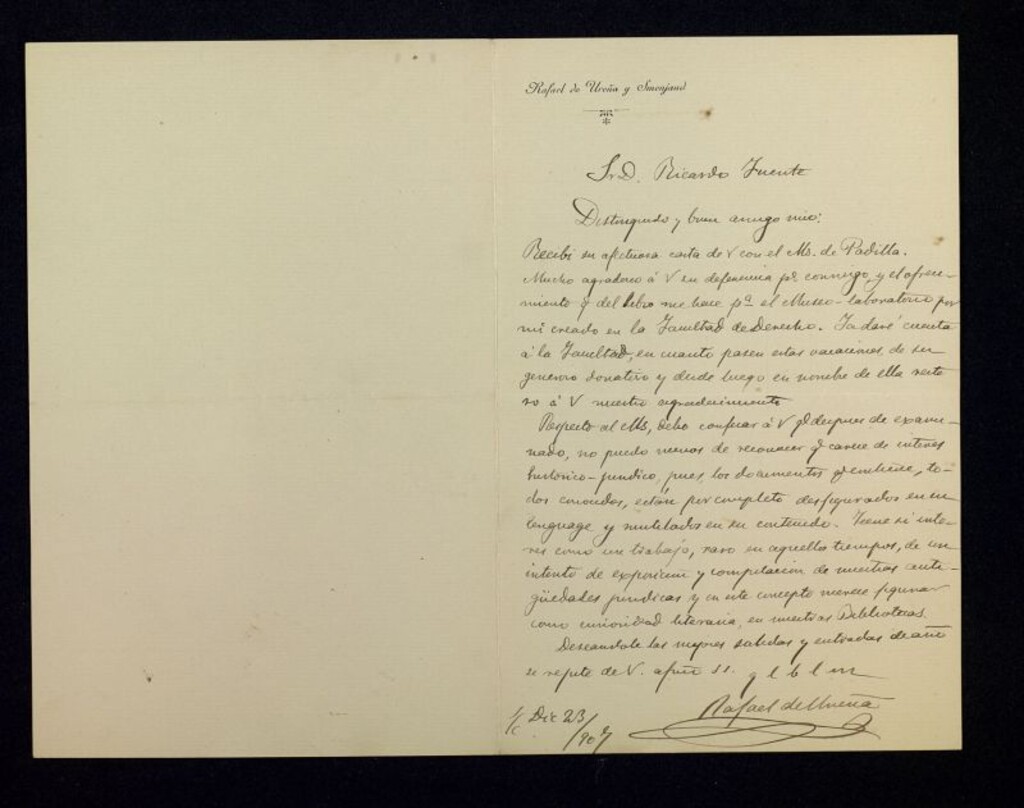 Rafael de Ureña y Smenjaud
Sr. D. Ricardo Fuente
Distinguido y buen amigo mio:
Recibi su afectuosa carta de V con el Ms. de Padilla.
Mucho agradezco á V su deferencia pª conmigo, y el ofreci-
miento q del libro me hace pª el Museo-laboratorio por
mi creado en la Facultad de Derecho. Ya daré cuenta
á la Facultad, en cuanto pasen estas vacaciones, de su
generoso donativo y desde luego en nombre de ella reite
ro á V nuestro agradecimiento
Respecto al Ms, debo confesar á V q despues de exami-
nado, no puedo menos de reconocer q carece de interes
historico-juridico, pues, los documentos q contiene, to-
dos conocidos, están por completo desfigurados en su
lenguage y mutilados en su contenido. Tiene si inte-
res como un trabajo, raro en aquellos tiempos, de un
intento de exposicion y compilacion de nuestras anti-
güedades juridicas y en este concepto merece figurar
como curiosidad literaria, en nuestras Bibliotecas.
Deseandole las mejores salidas y entradas de año
se repite de V. afmo ss. q l b l m
Rafael de Ureña
s/c Dic 23/907